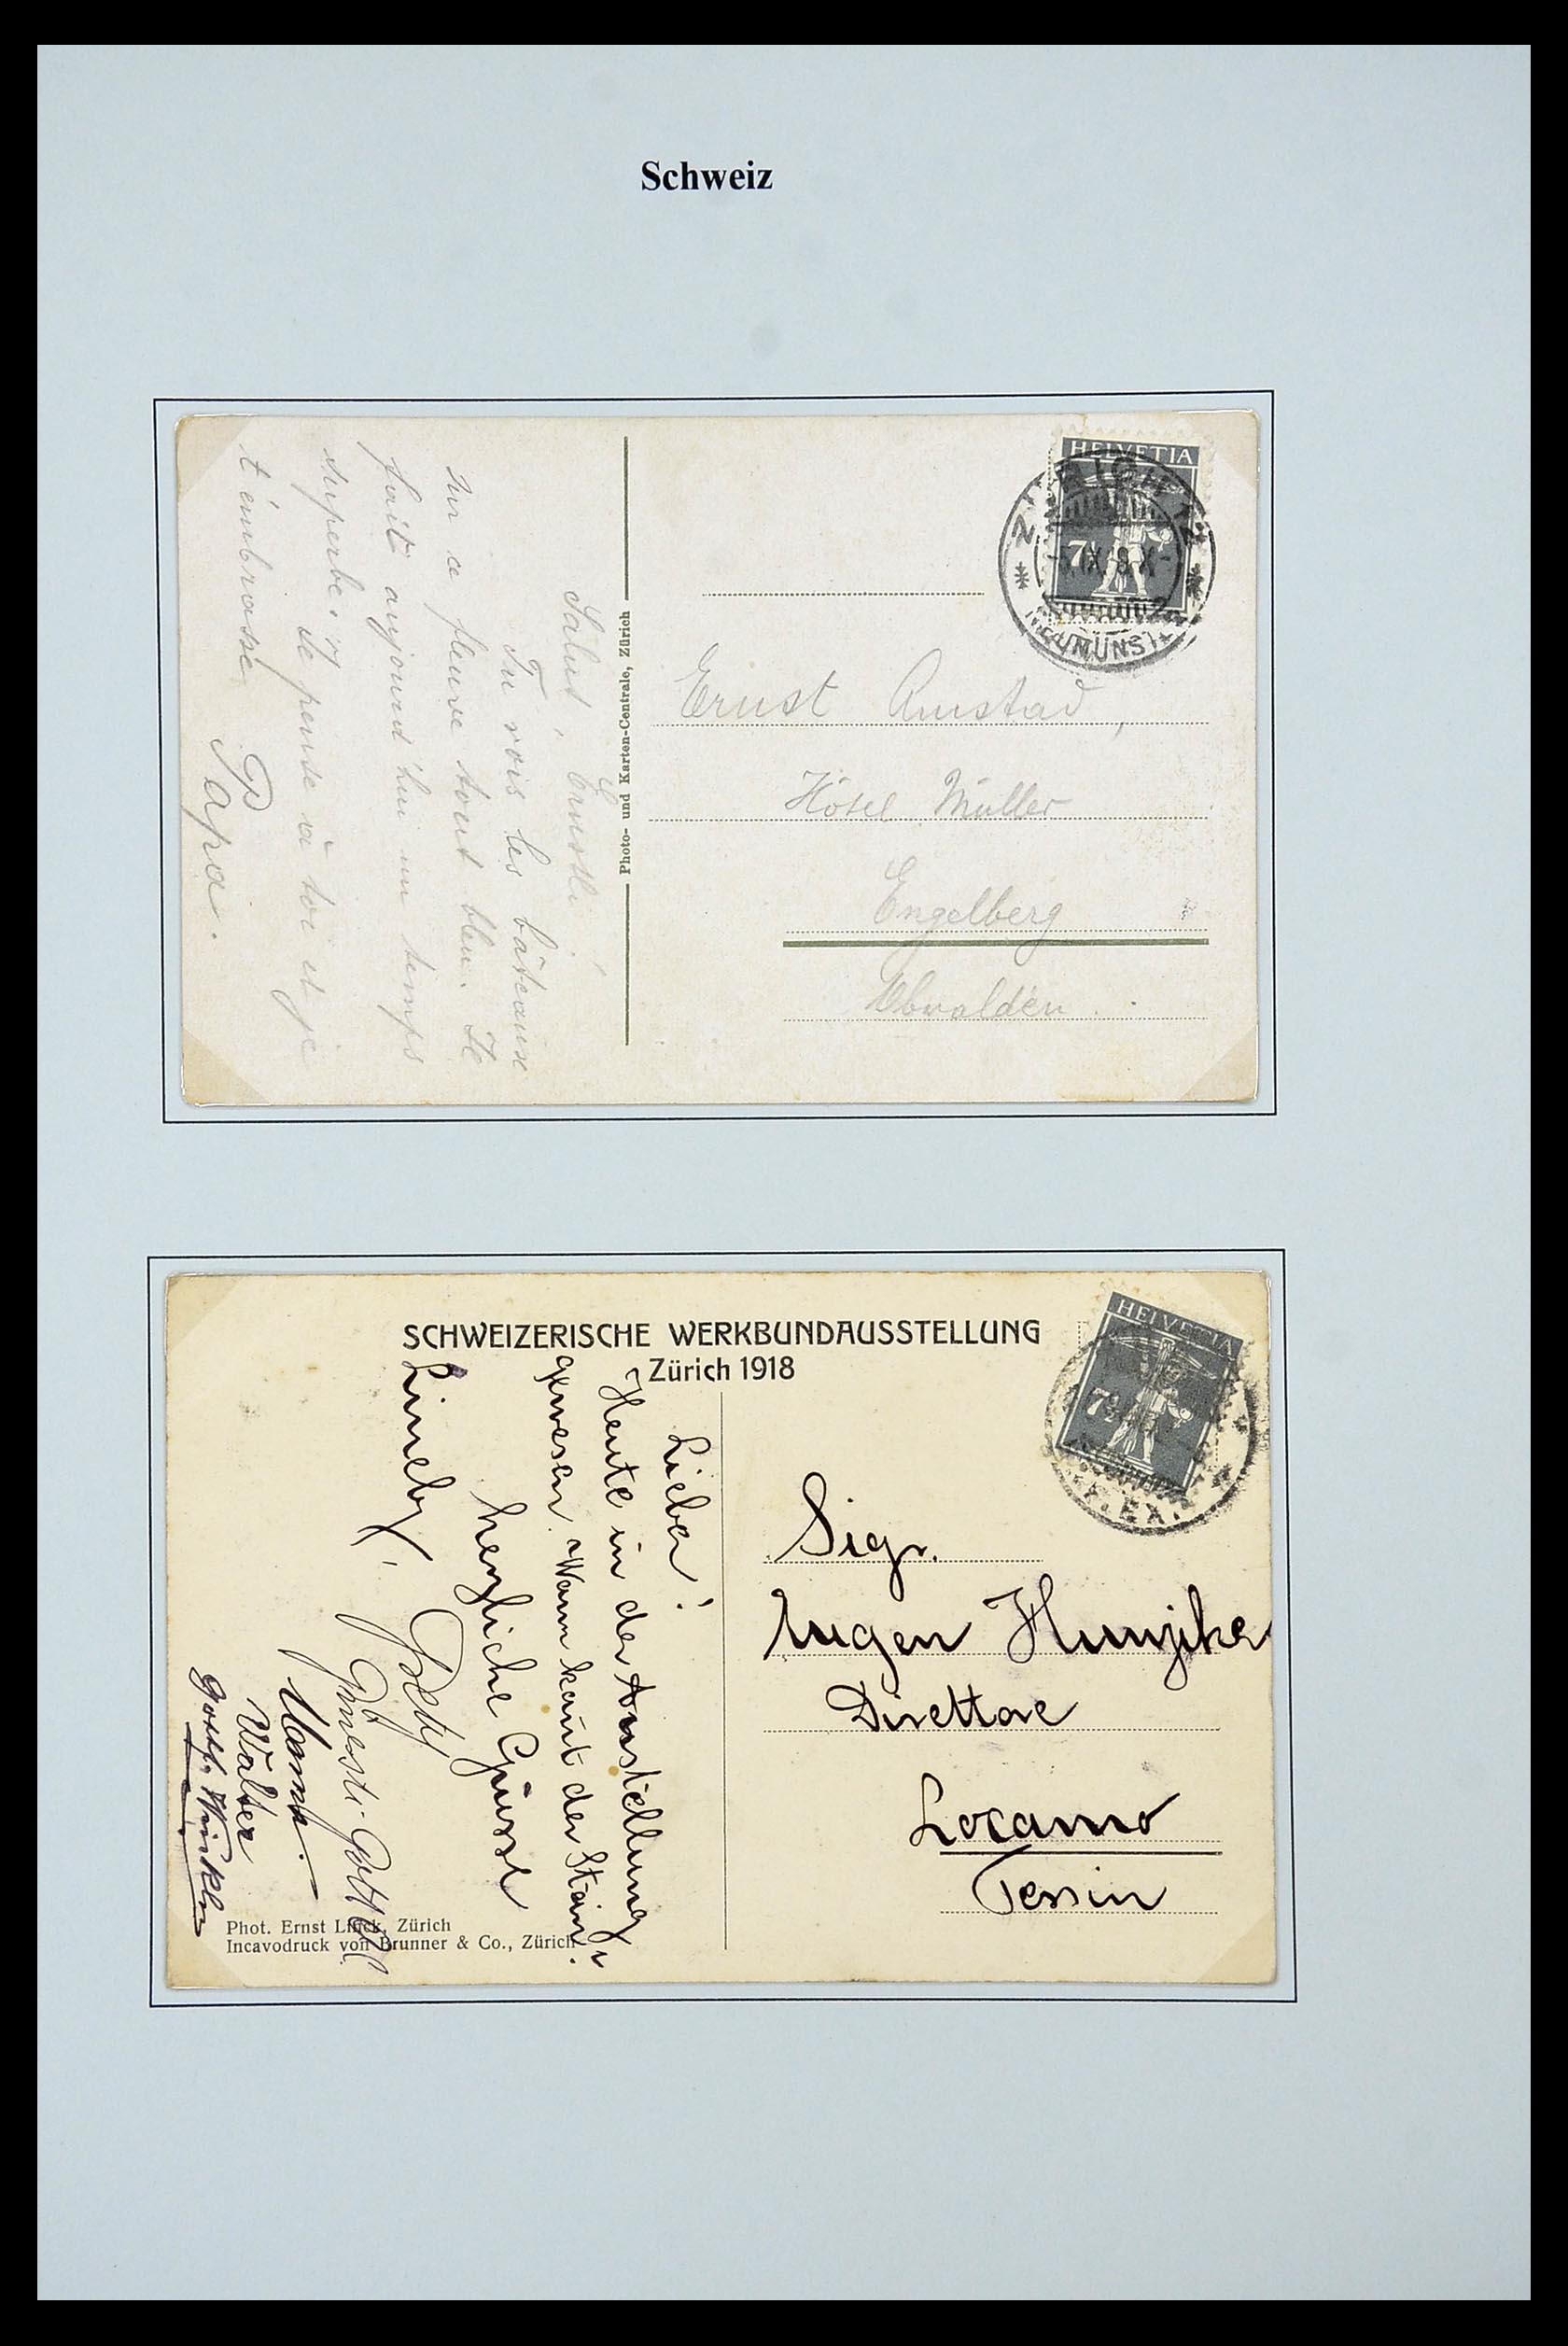 Schweiz
HELVETIA
7½
ZÜRICH 12
NEUMÜNST
Ernst Amstad,
Hôtel Müller
Engelberg
Obwalden.
Photo- und Karten-Centrale, Zürich
Salut, Ernstli!
Tu vois les bâteaux
sur ce fleuve tout bleu. Il
fait aujourd'hui un temps
superbe. Je pense à toi et je
t'embrasse
Papa.
SCHWEIZERISCHE WERKBUNDAUSSTELLUNG
Zürich 1918
HELVETIA
7½
Sigr.
Eugen Hunziker
Direttore
Locarno
Tessin
Lieber!
Heute in der Ausstellung
gewesen. Wann kommt der Stein?
herzliche Grüsse
Betty
Walter
Gottf. Winkler
Phot. Ernst Linck, Zürich
Incavodruck von Brunner & Co., Zürich